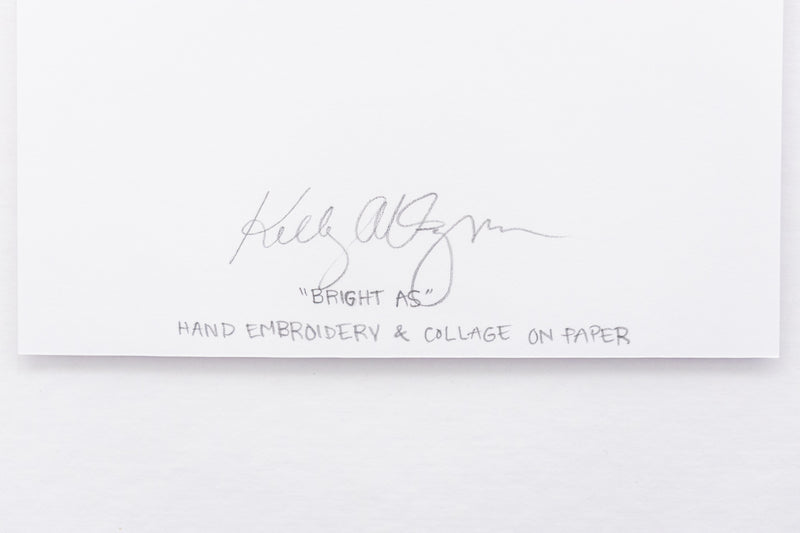 Kelly
"BRIGHT AS"
HAND EMBROIDERY & COLLAGE ON PAPER